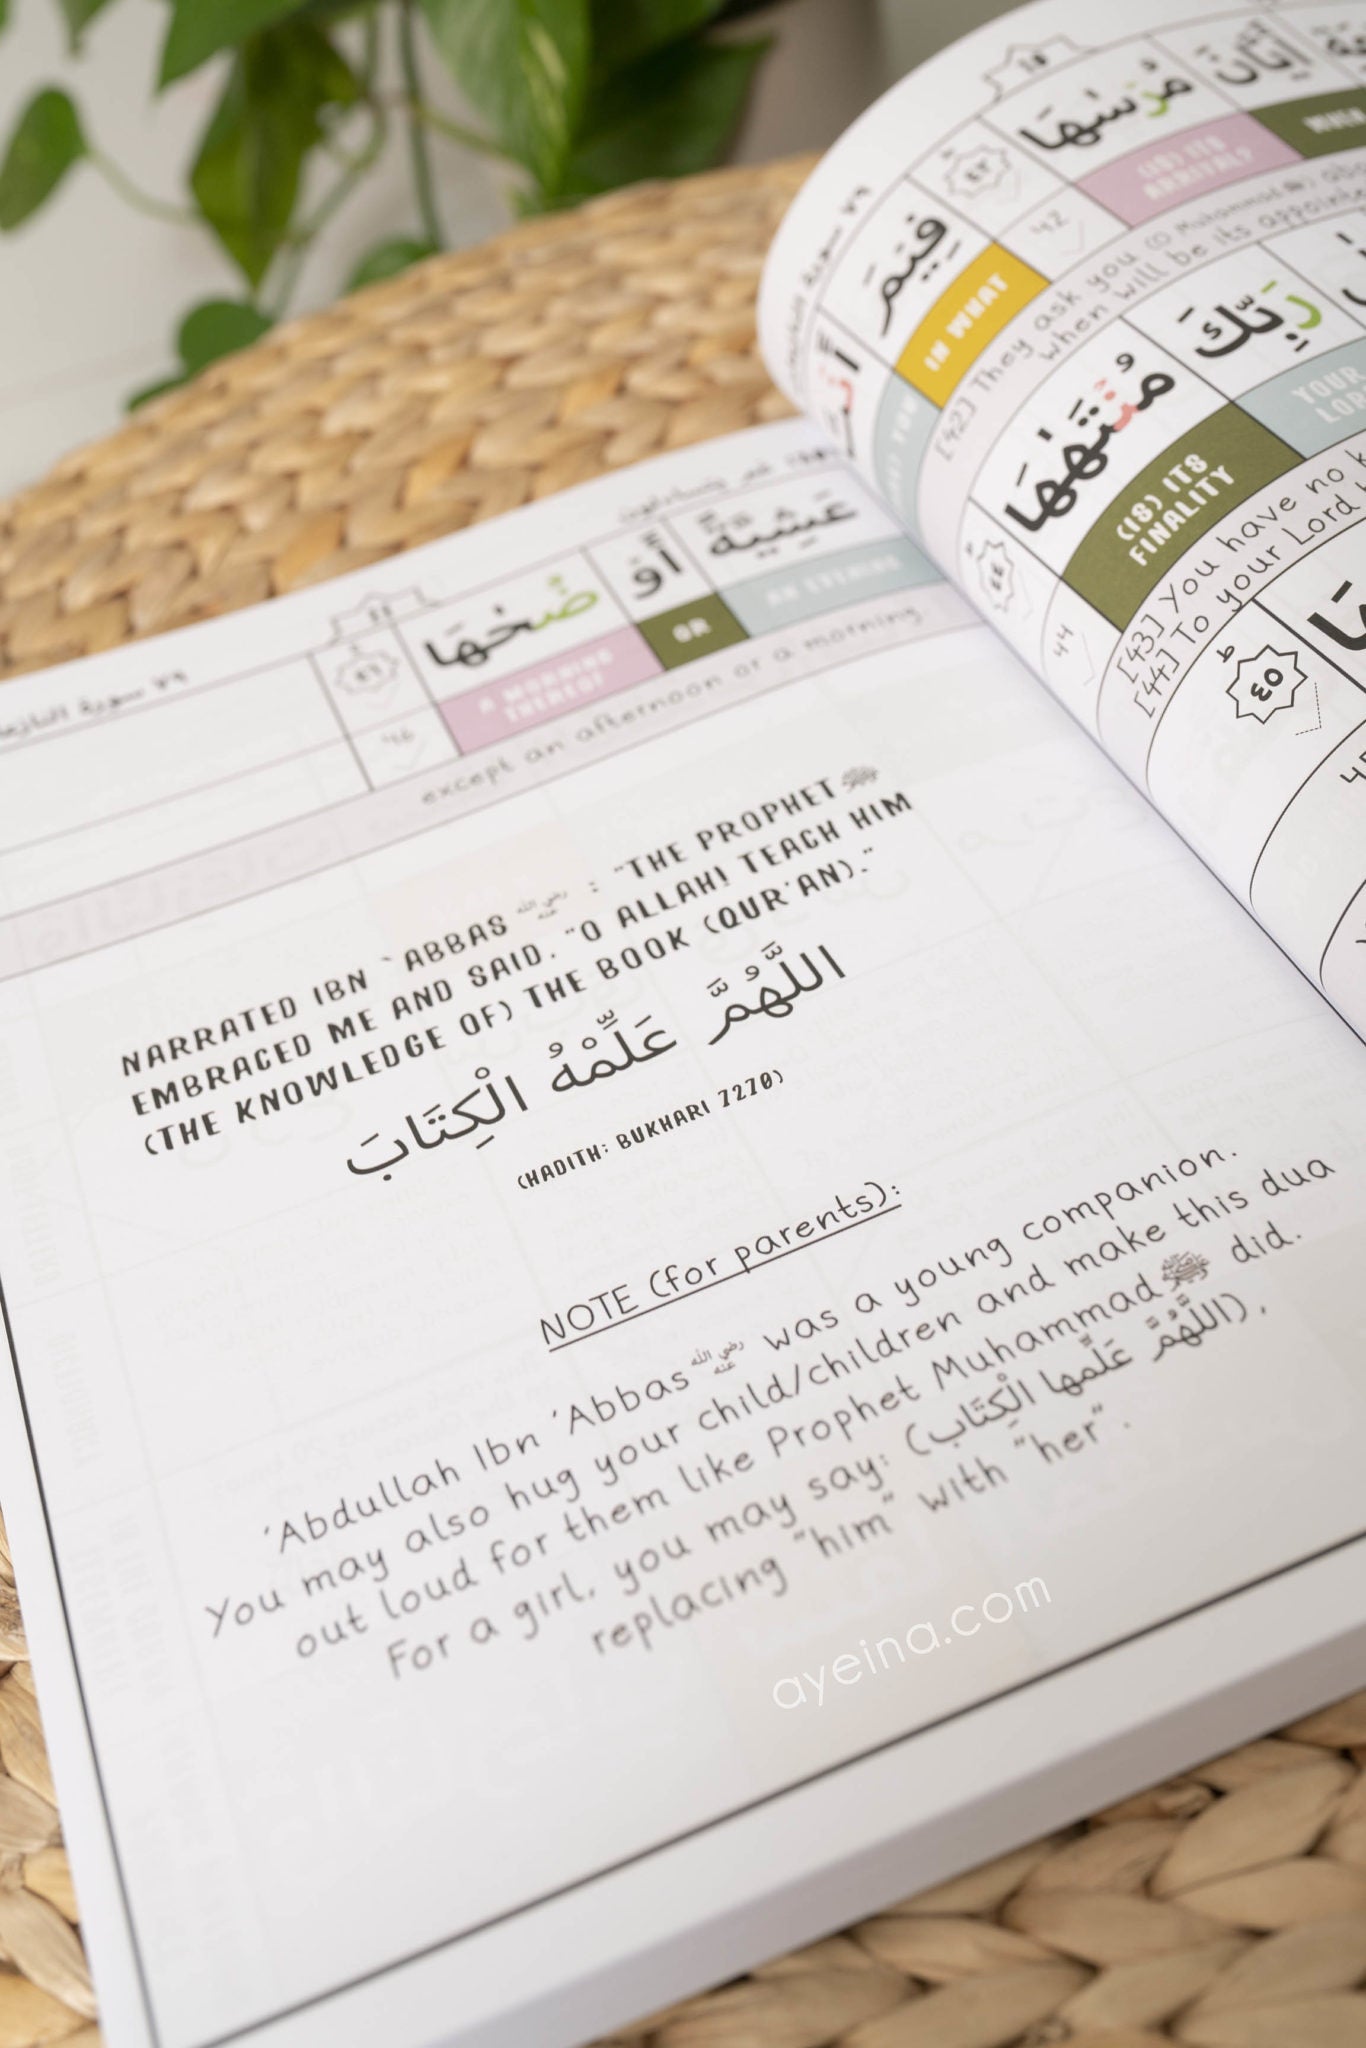 عَشِيَّةً أَوْ ضُحٰىهَا
AN EVENING
OR
A MORNING
THEREOF
٤٦
46
except an afternoon or a morning.
NARRATED IBN `ABBAS رضي الله عنه : "THE PROPHET ﷺ
EMBRACED ME AND SAID, "O ALLAH! TEACH HIM
(THE KNOWLEDGE OF) THE BOOK (QUR'AN)."
اللَّهُمَّ عَلِّمْهُ الْكِتَابَ
(HADITH: BUKHARI 7270)
NOTE (for parents):
'Abdullah Ibn 'Abbas رضي الله عنه was a young companion.
You may also hug your child/children and make this dua
out loud for them like Prophet Muhammad ﷺ did.
For a girl, you may say: (اللَّهُمَّ عَلِّمها الْكِتَاب),
replacing "him" with "her".
ayeina.com
٧٩ سورة النازعات
أَيَّانَ مُرْسٰىهَا
(IS) ITS
ARRIVAL?
٤٢
42
[42] They ask you (O Muhammad ﷺ)
when will be its
فِيْمَ
IN WHAT
رَبِّكَ مُنْتَهٰىهَا
YOUR
LORD
(IS) ITS
FINALITY
٤٤
44
[43] You have no
[44] To your Lord
٤٥